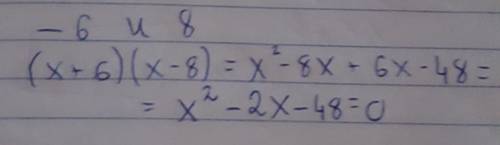 -6 и 8
(x+6)(x-8) = x²-8x+6x-48=
= x²-2x-48=0